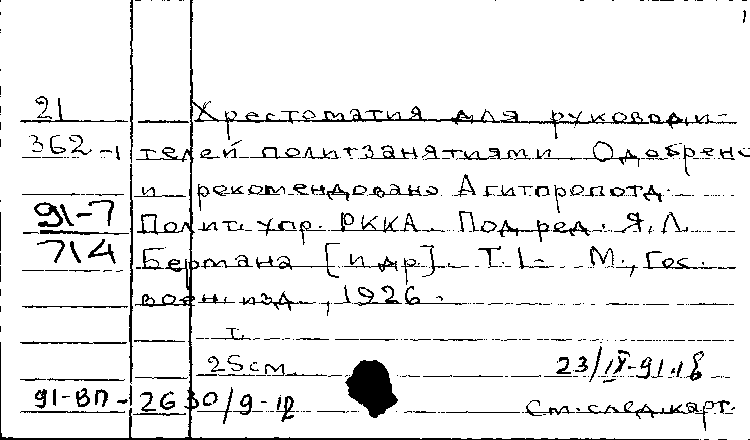 21 Хрестоматия для руководи-
362-1 телей политзанятиями. Одобрено
и рекомендовано Агитпропотд.
91-7 Полит. упр. РККА. Под ред. Я. Л.
714 Бермана [и др]. Т.1- М., Гос.
воен. изд., 1926.
т.
25см.
91-ВП-2630/9-12
См. след. карт.